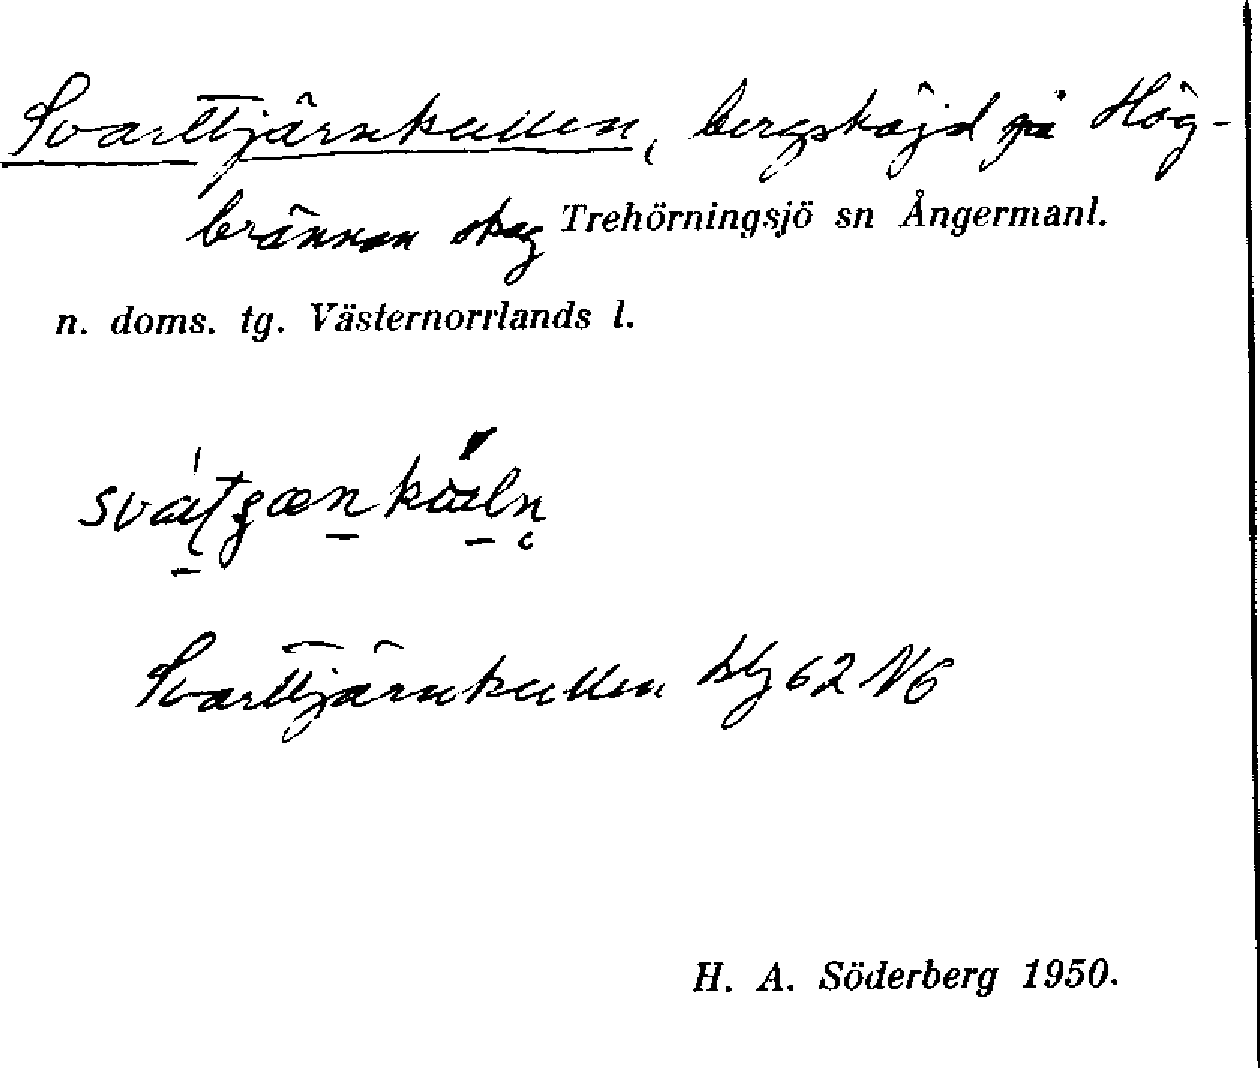 Svarttjärnkullen, bergshöjd på Hög-
brännan skog Trehörningsjö sn Ångermanl.
n. doms. tg. Västernorrlands l.
Svarttjärnkullen blg 62 N6
H. A. Söderberg 1950.